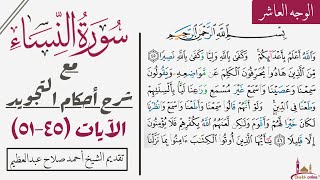 الوجه العاشر
سورة النساء
مع
شرح أحكام التجويد
الآيات (٤٥-٥١)
تقديم الشيخ أحمد صلاح عبدالعظيم
بِسْمِ اللَّهِ الرَّحْمَٰنِ الرَّحِيمِ
وَاللَّهُ أَعْلَمُ بِأَعْدَائِكُمْ وَكَفَىٰ بِاللَّهِ وَلِيًّا وَكَفَىٰ بِاللَّهِ نَصِيرًا ٤٥
مِّنَ الَّذِينَ هَادُوا يُحَرِّفُونَ الْكَلِمَ عَن مَّوَاضِعِهِ وَيَقُولُونَ
سَمِعْنَا وَعَصَيْنَا وَاسْمَعْ غَيْرَ مُسْمَعٍ وَرَاعِنَا لَيًّا بِأَلْسِنَتِهِمْ
وَطَعْنًا فِي الدِّينِ وَلَوْ أَنَّهُمْ قَالُوا سَمِعْنَا وَأَطَعْنَا وَاسْمَعْ وَانظُرْنَا
لَكَانَ خَيْرًا لَّهُمْ وَأَقْوَمَ وَلَٰكِن لَّعَنَهُمُ اللَّهُ بِكُفْرِهِمْ فَلَا يُؤْمِنُونَ
إِلَّا قَلِيلًا ٤٦ يَا أَيُّهَا الَّذِينَ أُوتُوا الْكِتَابَ آمِنُوا بِمَا نَزَّلْنَا